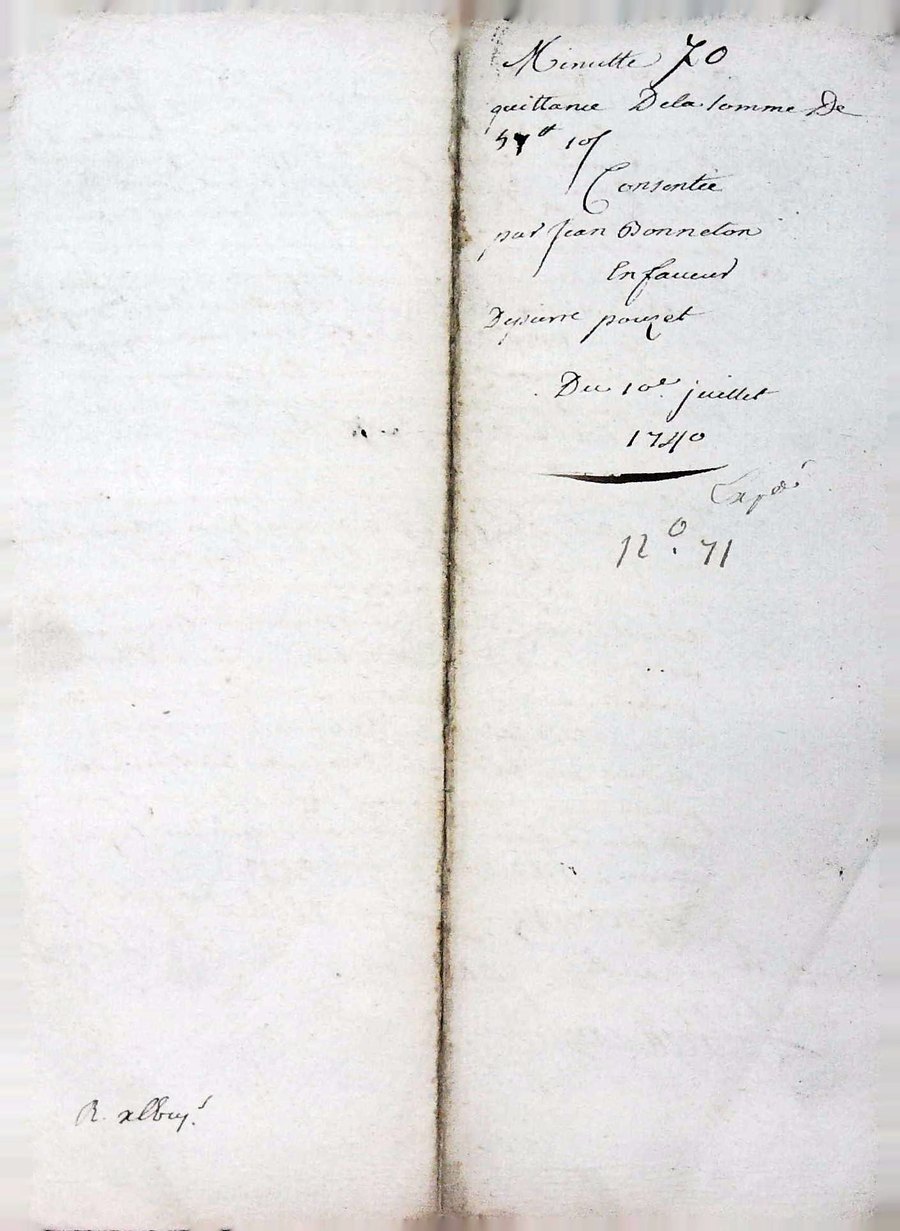 Minutte 70
quittance Dela somme De
57tt 10s
Consentie
par Jean Bonneton
En faveur
Depierre pouzet
Du 10e juillet
1740
Expée
No. 71
R.